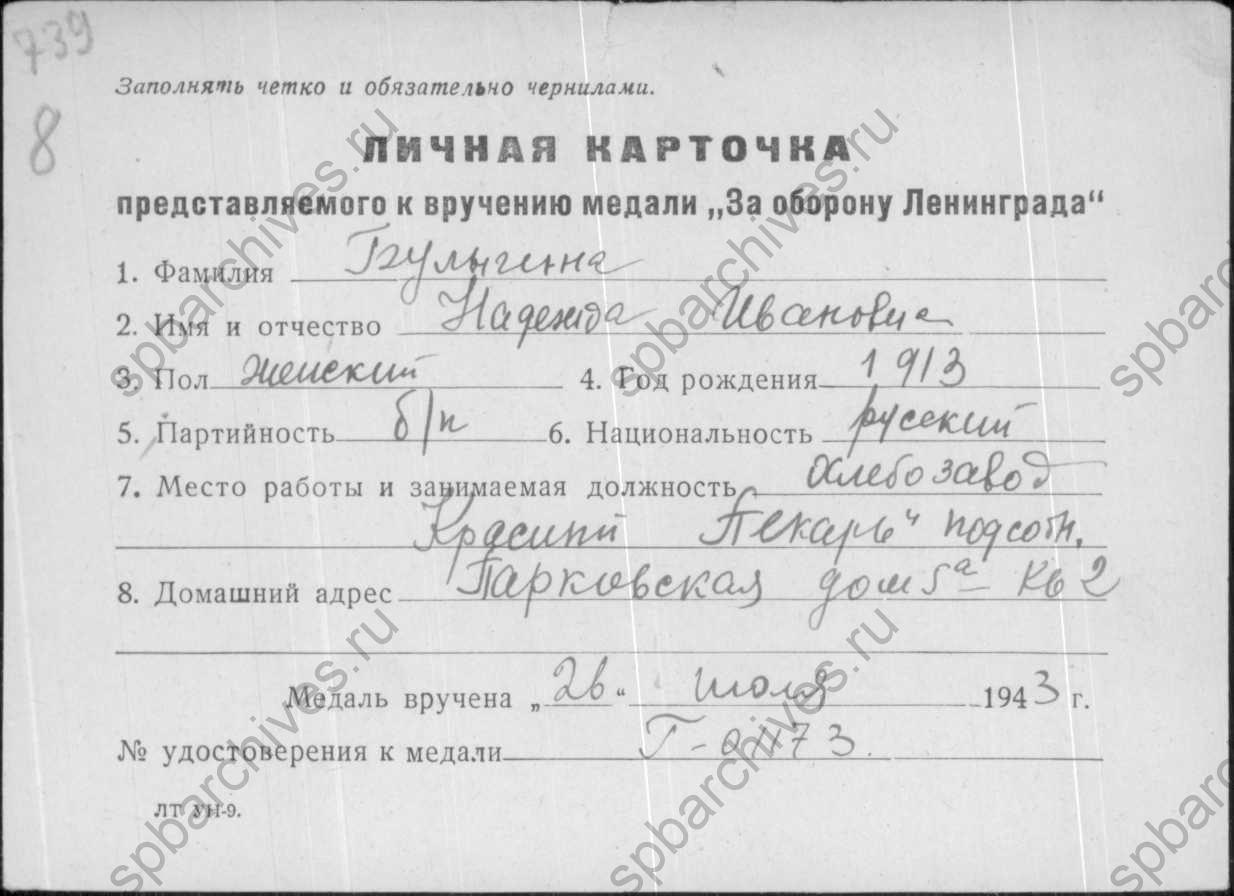 739
8
Заполнять четко и обязательно чернилами.
ЛИЧНАЯ КАРТОЧКА
представляемого к вручению медали „За оборону Ленинграда“
1. Фамилия Булыгинна
2. Имя и отчество Надежда Ивановна
3. Пол женский 4. Год рождения 1913
5. Партийность б/п 6. Национальность русский
7. Место работы и занимаемая должность Хлебозавод
Красный Пекарь" подсобн.
8. Домашний адрес Парковская дом 5а кв 2
Медаль вручена „26“ июля 1943 г.
№ удостоверения к медали Г-01173.
ЛТ УН-9.
spbarchives.ru
spbarchives.ru
spbarchives.ru
spbarchives.ru